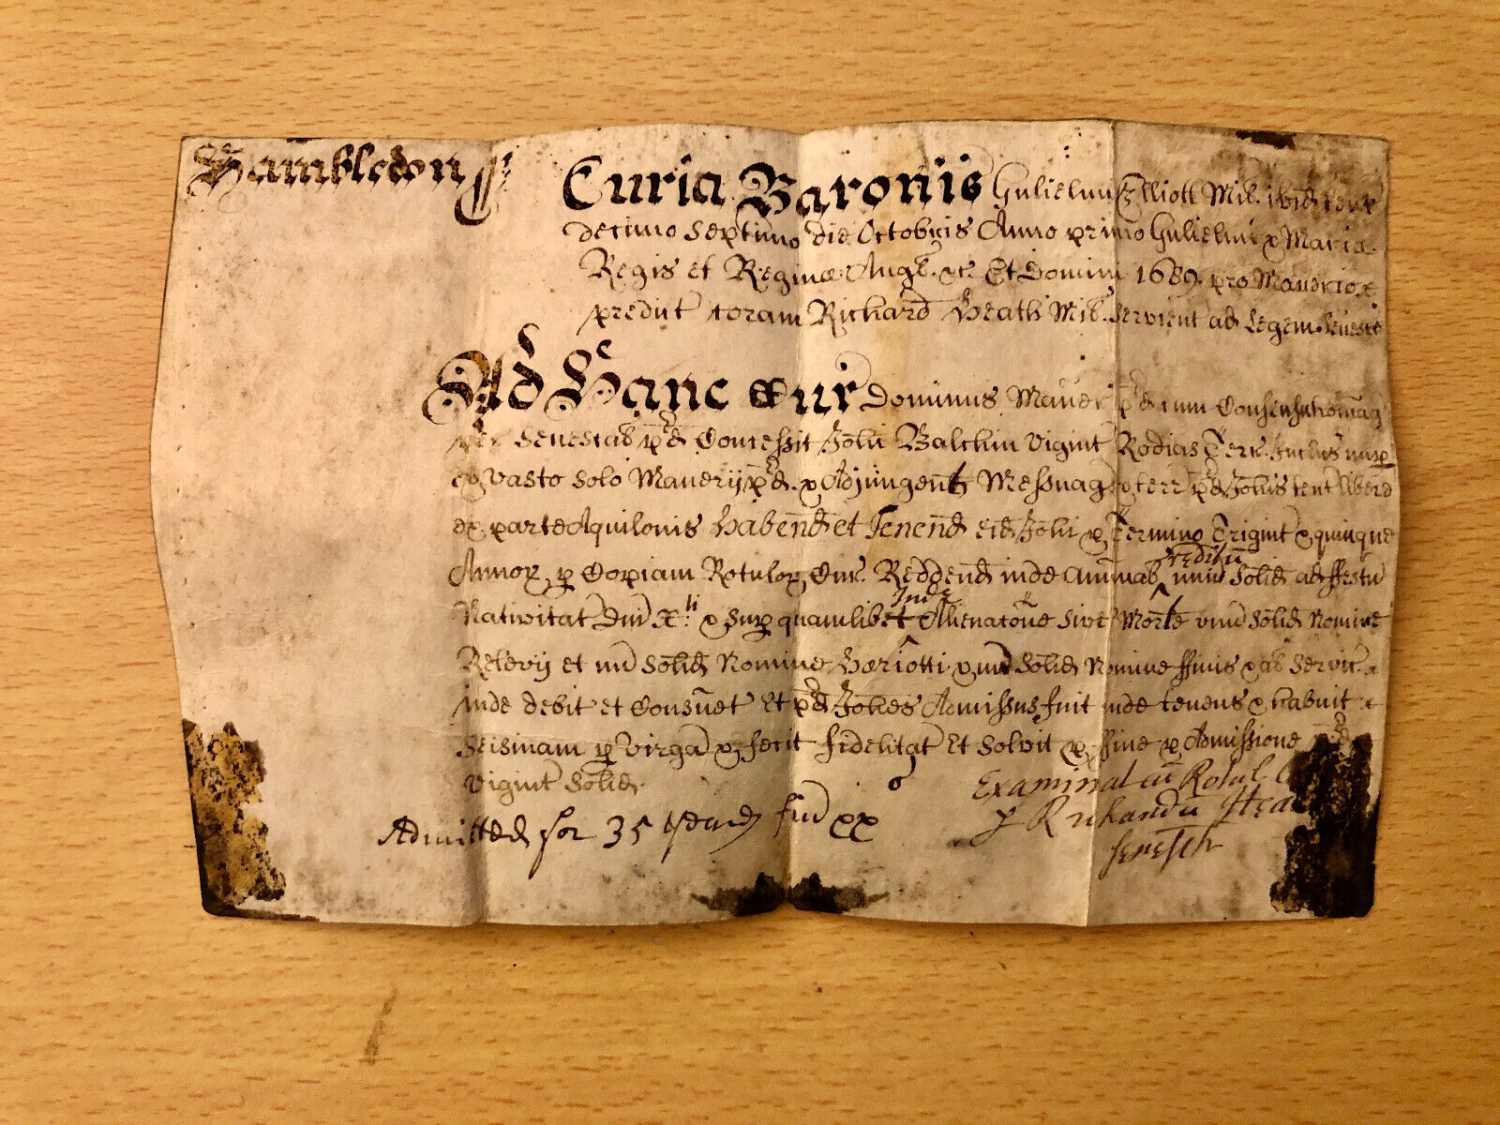 Hambledon
Curia Baronis Gulielmi Elliott Mil. ibid tent
decimo Septimo die Octobris Anno primo Gulielmi & Maria
Regis et Reginæ Angl. &c. Et Domini 1689. pro Manerio
predict coram Richard Heath Mil. Servient ad Legem Senesc
Ad Hanc Cur Dominus Maner p̄d cum Consensu
Senescal p̄d Concessit Joh̄i Balchin vigint Rodias Terr.
ex vasto solo Manerij p̄d. & Adjungent Messuag & terr p̄d Joh̄is
ex parte Aquilonis Habend̄ et Tenend̄ eid Joh̄i p Termino Trigint & quinque
Annor p Copiam Rotulor Cur. Reddend̄ inde annual reditū unius Solid ad ffestū
Nativitat Dn̄i Xti & Sup quamlibet Inde Alienatōne sive Morte unū Solid Nomine
Relevij et un Solid Nomine Hariotti & un Solid Nomine ffinis & al Servic
inde debit et Consuet Et p̄d Joh̄es Admissus fuit inde tenens & habuit
Seisinam p Virgā & fecit fidelitat Et Solvit p ffine p Admissione p̄d
vigint Solid.
Examinat cū Rotul
Admitted for 35 years fin xx
p Richardū Hea
Senesch